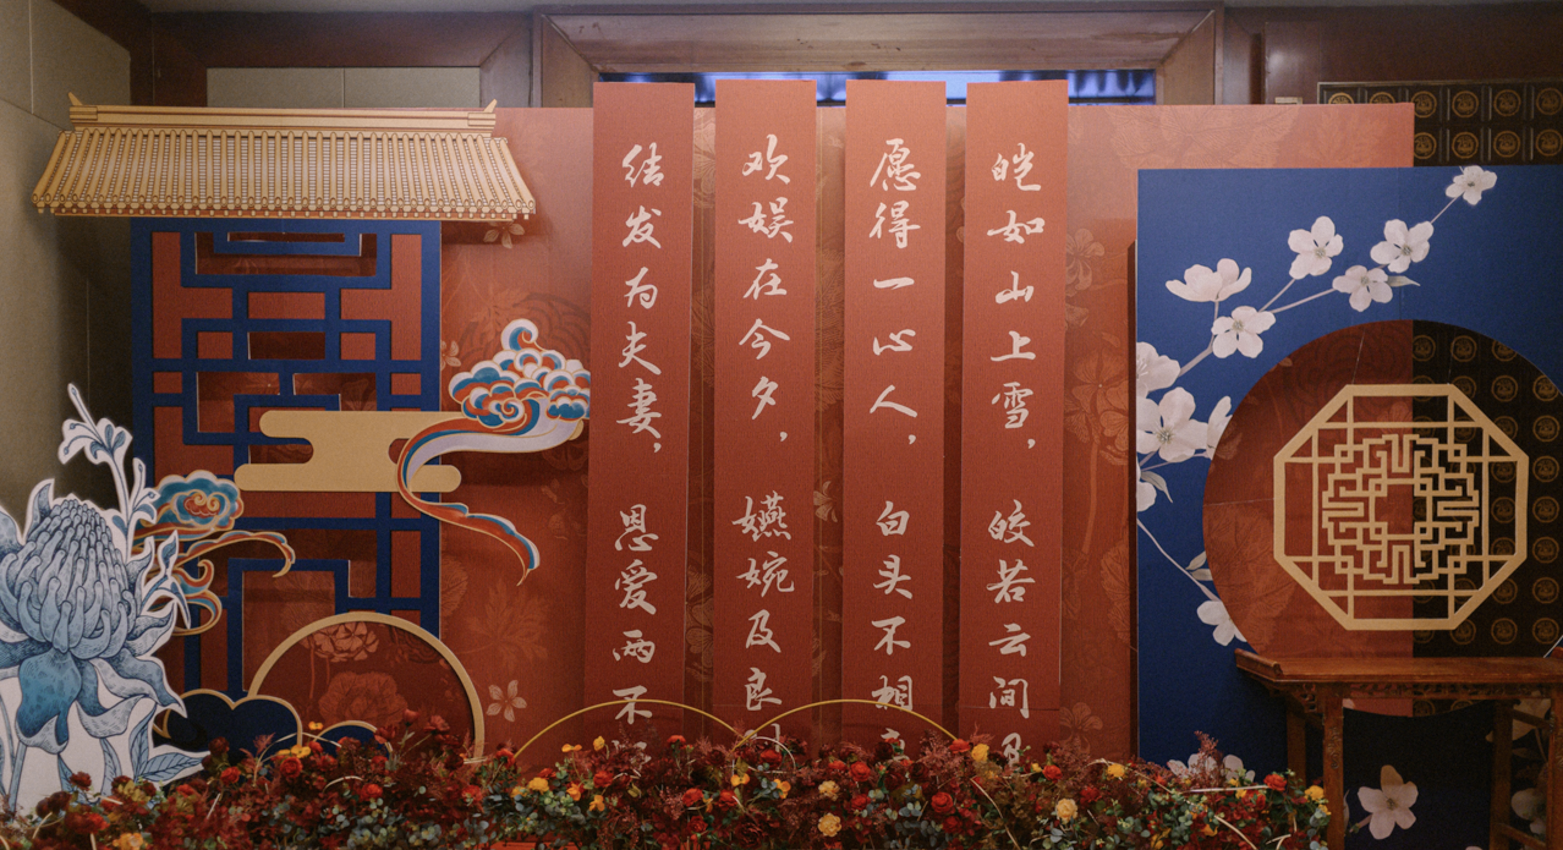 皑如山上雪，皎若云间
愿得一心人，白头不相
欢娱在今夕，嬿婉及良
结发为夫妻，恩爱两不